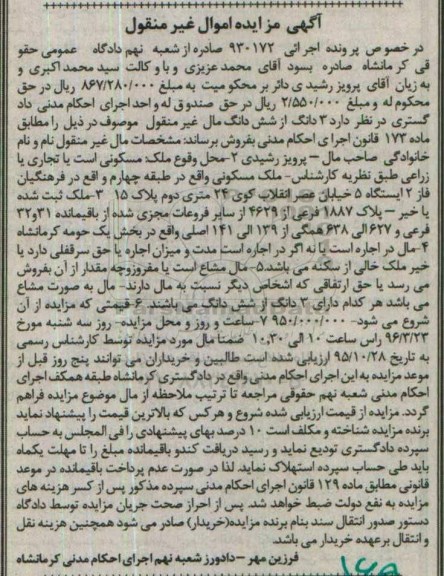 آگهی مزایده اموال غیر منقول
در خصوص پرونده اجرائی ۹۳۰۱۷۲ صادره از شعبه نهم دادگاه عمومی حقو
قی کرمانشاه صادره بسود آقای محمد عزیزی و با وکالت سید محمد اکبری و
به زیان آقای پرویز رشیدی دائر بر محکومیت به مبلغ ۸۶۷/۲۸۰/۰۰۰ ریال در حق
محکوم له و مبلغ ۲/۵۵۰/۰۰۰ ریال در حق صندوق له واحد اجرای احکام مدنی داد
گستری در نظر دارد ۳ دانگ از شش دانگ مال غیر منقول موصوف در ذیل را مطابق
ماده ۱۷۳ قانون اجرای احکام مدنی بفروش برساند: مشخصات مال غیر منقول نام و نام
خانوادگی صاحب مال – پرویز رشیدی ۲-محل وقوع ملک: مسکونی است یا تجاری یا
زراعی طبق نظریه کارشناس- ملک مسکونی واقع در طبقه چهارم و اقع در فرهنگیان
فاز ۲ ایستگاه ۵ خیابان عصر انقلاب کوی ۲۴ متری دوم پلاک ۱۵ ۳-ملک ثبت شده
یا خیر – پلاک ۱۸۸۷ فرعی از ۴۶۲۹ از سایر فروعات مجزی شده از باقیمانده ۳۱و۳۲
فرعی و ۶۲۷ الی ۶۳۸ همگی از ۱۳۹ الی ۱۴۱ اصلی واقع در بخش یک حومه کرمانشاه
۴-مال در اجاره است یا نه اگر در اجاره است مدت و میزان اجاره یا حق سرقفلی دارد یا
خیر ملک خالی از سکنه می باشد. ۵- مال مشاع است یا مفروزوچه مقدار از آن بفروش
می رسد یا حق ارتفاقی که اشخاص دیگر نسبت به مال دارند- مال به صورت مشاع
می باشد هر کدام دارای ۳ دانگ از شش دانگ می باشند ۶-قیمتی که مزایده از آن
شروع می شود- ۹۵۰/۰۰۰/۰۰۰ ۷-ساعت و روز و محل مزایده- روز سه شنبه مورخ
۹۶/۳/۲۳ راس ساعت ۱۰ الی ۱۰،۳۰ ضمنا مال مورد مزایده توسط کارشناس رسمی
به تاریخ ۹۵/۱۰/۲۸ ارزیابی شده است طالبین و خریداران می توانند پنج روز قبل از
موعد مزایده به این اجرای احکام مدنی واقع در دادگستری کرمانشاه طبقه همکف اجرای
احکام مدنی شعبه نهم حقوقی مراجعه تا ترتیب ملاحظه از مال موضوع مزایده فراهم
گردد. مزایده از قیمت ارزیابی شده شروع و هرکس که بالاترین قیمت را پیشنهاد نماید
برنده مزایده شناخته و مکلف است ۱۰ درصد بهای پیشنهادی را فی المجلس به حساب
سپرده دادگستری تودیع نماید و رسید دریافت کندو باقیمانده مبلغ را تا مهلت یکماه
باید طی حساب سپرده استهلاک نماید. لذا در صورت عدم پرداخت باقیمانده در موعد
قانونی مطابق ماده ۱۲۹ قانون اجرای احکام مدنی سپرده مذکور پس از کسر هزینه های
مزایده به نفع دولت ضبط خواهد شد. پس از احراز صحت جریان مزایده توسط دادگاه
دستور صدور انتقال سند بنام برنده مزایده(خریدار) صادر می شود همچنین هزینه نقل
و انتقال برعهده خریدار می باشد.
فرزین مهر –دادورز شعبه نهم اجرای احکام مدنی کرمانشاه